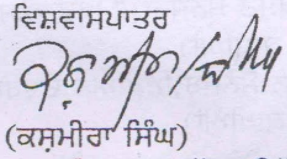 ਵਿਸ਼ਵਾਸਪਾਤਰ
(ਕਸ਼ਮੀਰਾ ਸਿੰਘ)